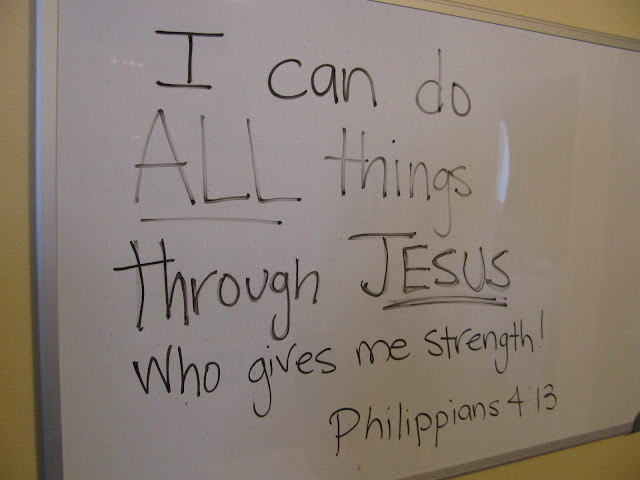 I can do
ALL things
through JESUS
who gives me strength!
Philippians 4:13